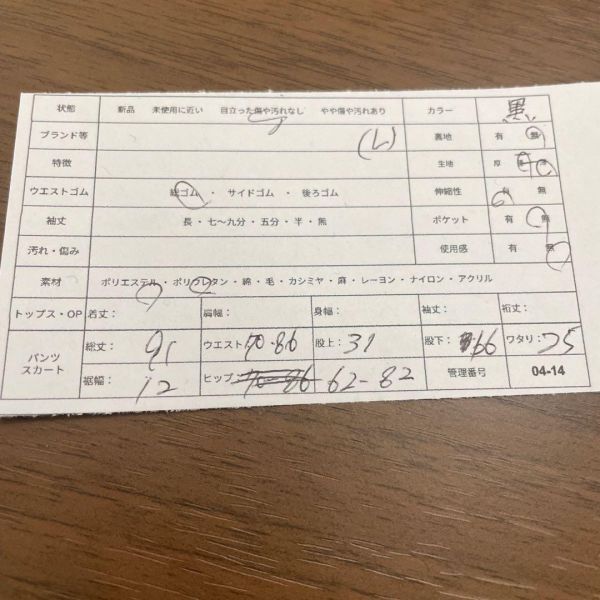 状態 新品 未使用に近い 目立った傷や汚れなし やや傷や汚れあり カラー 黒
ブランド等 (L) 裏地 有 無
特徴 生地 厚
ウエストゴム 総ゴム ・ サイドゴム ・ 後ろゴム 伸縮性 有 無
袖丈 長 ・ 七〜九分 ・ 五分 ・ 半 ・ 無 ポケット 有 無
汚れ・傷み 使用感 有 無
素材 ポリエステル ・ ポリウレタン ・ 綿 ・ 毛 ・ カシミヤ ・ 麻 ・ レーヨン ・ ナイロン ・ アクリル
トップス・OP 着丈： 肩幅： 身幅： 袖丈： 裄丈：
パンツ スカート 総丈： 91 ウエスト： 70-86 股上： 31 股下： 66 ワタリ： 25
裾幅： 12 ヒップ： 70-86 62-82 管理番号 04-14